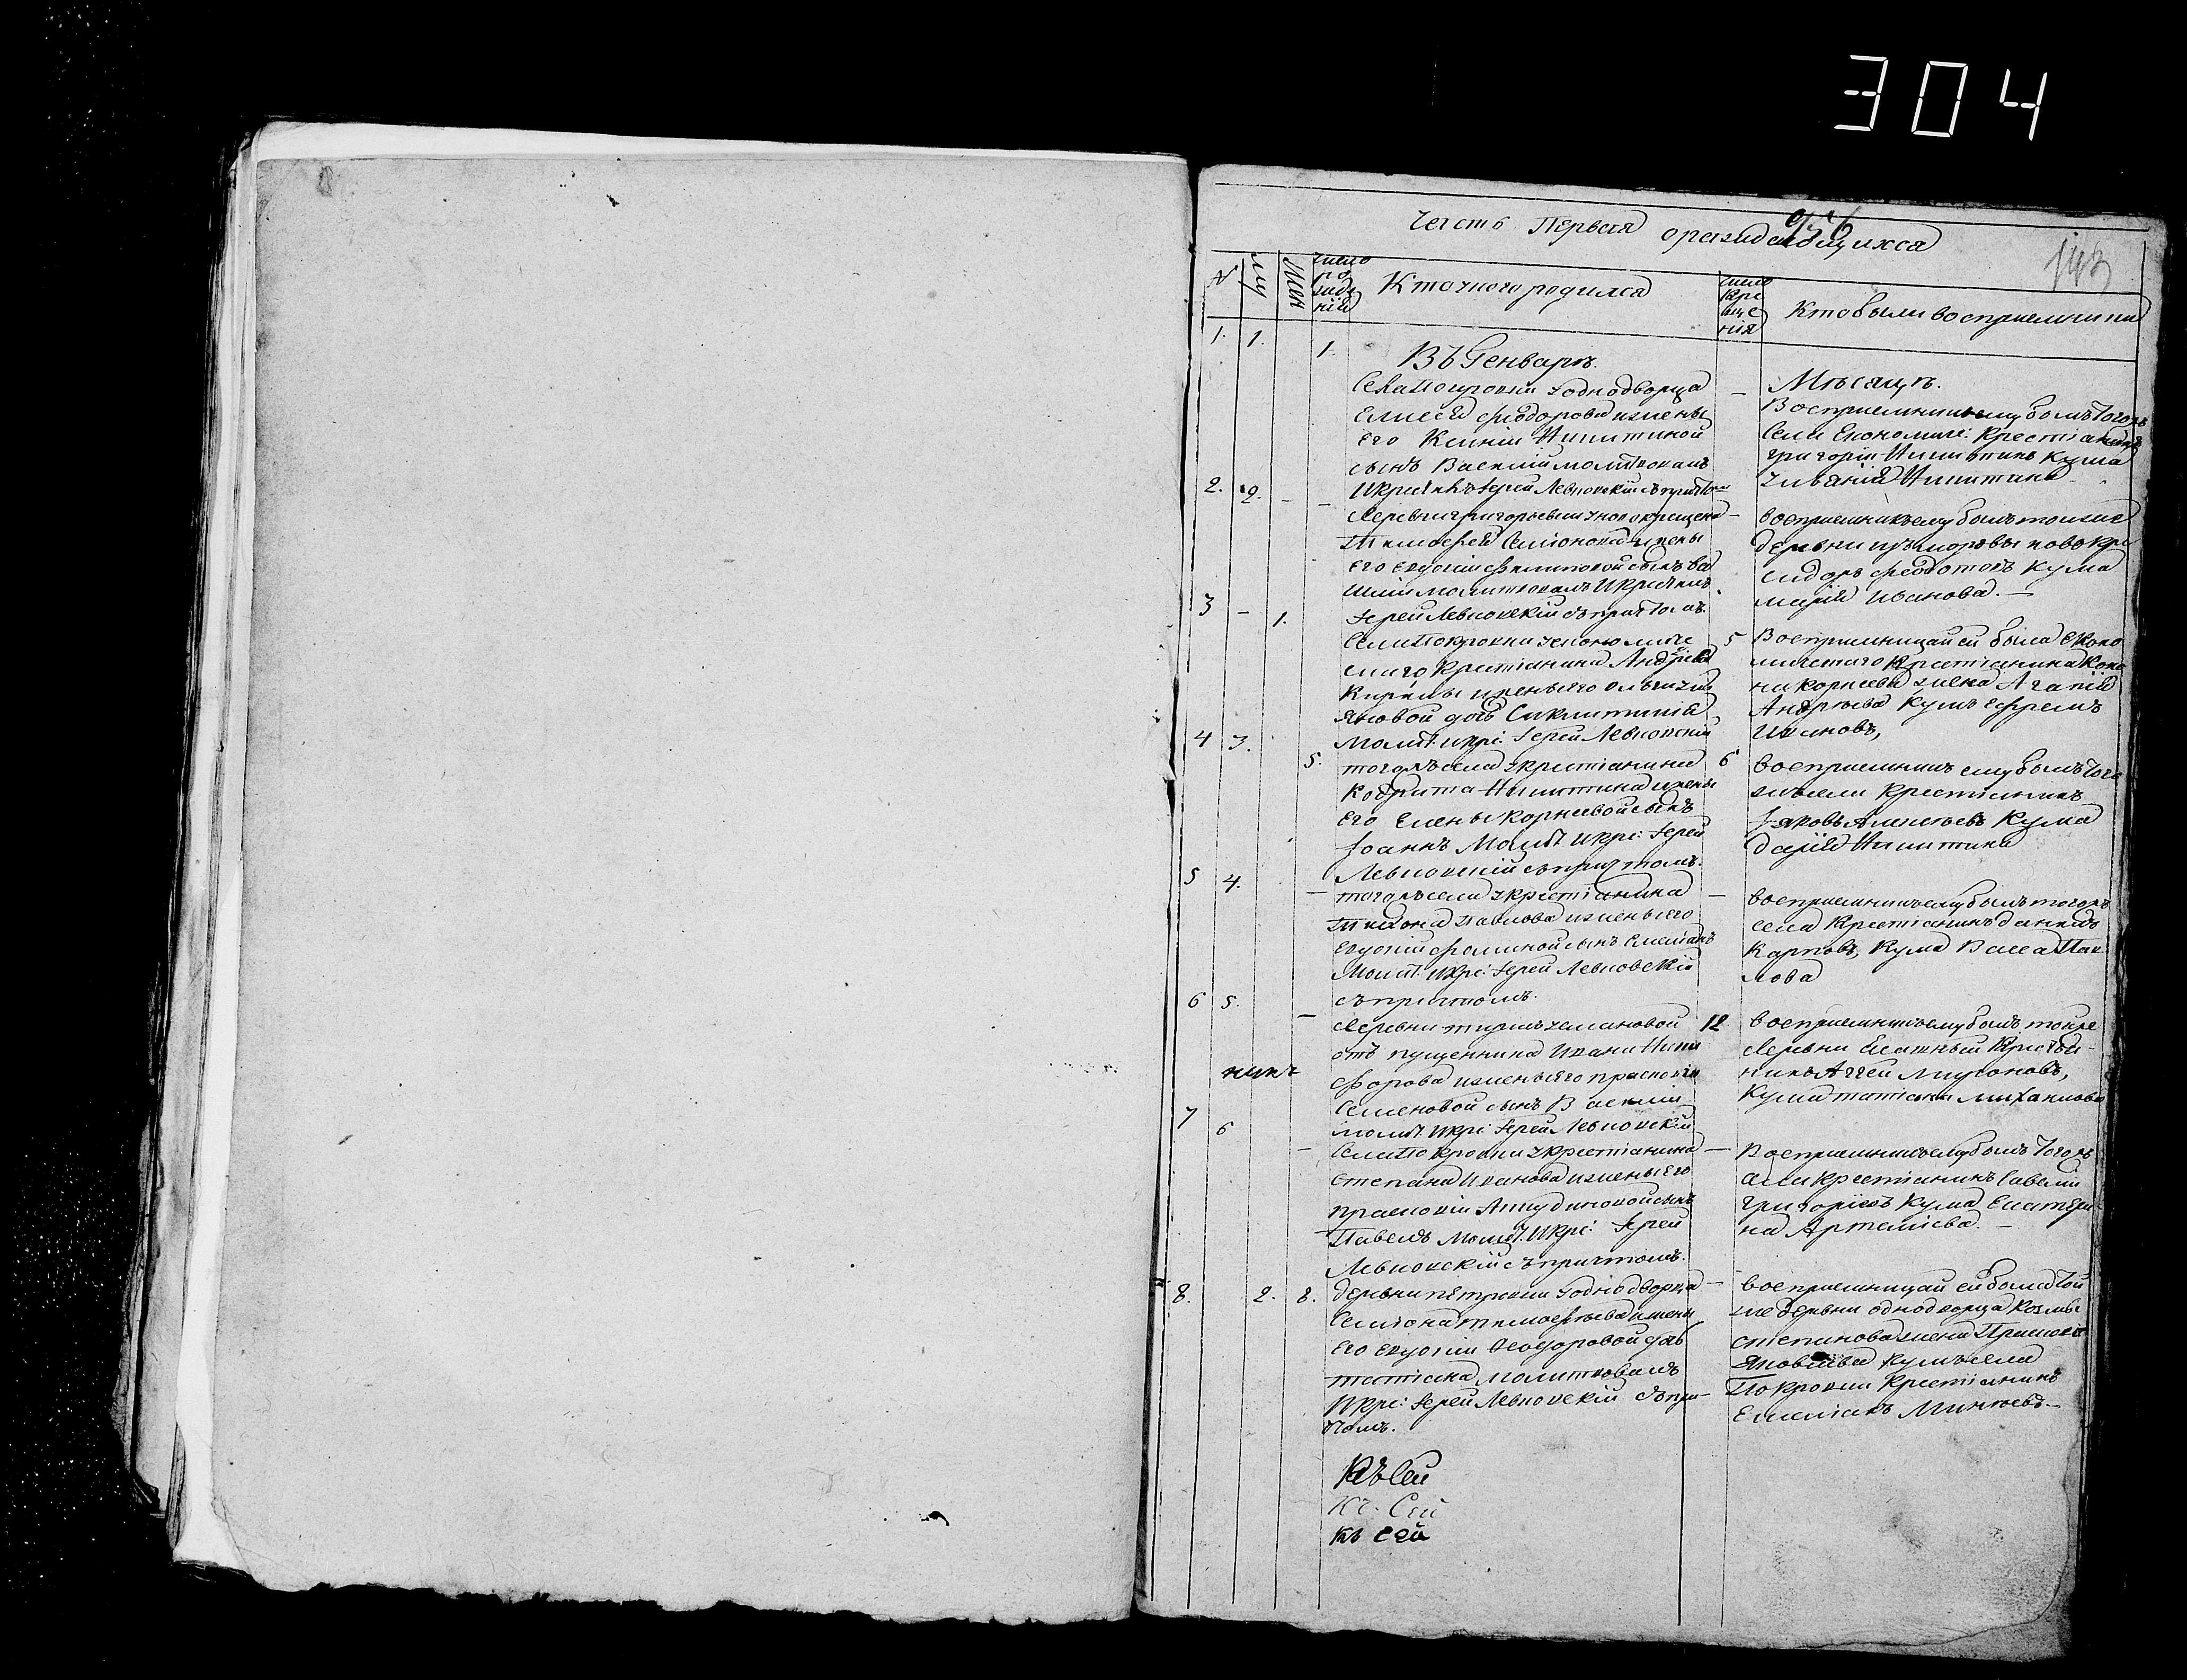 304
Часть Первая ораждающихся
956
143
№
му
Жен
число рождения
Кточного родился
число Крещения
Кто были восприемники
Въ Генваре.
Мѣсяцѣ.
1. 1. 1.
Села Покровки Уоднодворца
Елисея Феодорова ижены
Его Ксеніи Никитиной
сынъ Василій молитвовалъ
Икрестилъ Іерей Левковскій съпричтом
Восприемникъ ему былъ тогожъ
Села Економиче: Крестіанинъ
григорій Никитинъ Кума
Никитина
2. 2. - -
Деревни григорьевки Уновокрещена
Тимофея Семіонова ижены
Его Евдокіи Филиповой сынъ Ва
силій молитвовалъ Икрестилъ
Іерей Левковскій съпричтомъ
восприемникъ ему былъ тойже
деревни новокре
сидоръ федотовъ Кума
марія Иванова.
3 - 1.
Села Покровки Уекономиче
скаго Крестіанина Андрея
Кирилы ижены Его
яковой дочь Синклитикія
молит: икрс: Іерей Левковскій
5
Восприемницаи ей была Еконо
мическаго Крестіанина Коно
на Корнеева жена Агапія
Андреева Кумъ Ефремъ
Ивановъ,
4 3. 5.
тогожъ села Укрестіанина
Кодрата Никитина ижены
Его Елены Корнеевой сынъ
Іоаннъ Молит: икрс: Іерей
Левковскій съпричтомъ.
6
восприемникъ ему былъ того
жъ села Крестіанинъ
Іаковъ Алексѣевъ Кума
дарія Никитина
5 4. -
тогожъ села Укрестіанина
Тихона Павлова ижены Его
Евдокіи Фоминой сынъ Емеліанъ
Молит: икрс: Іерей Левковскій
съпричтомъ.
восприемникъ ему былъ тогожъ
села Крестіанинъ данила
Карповъ, Кума Васса Пав
лова
6 5. -
Деревни
отъ пущенника Ивана Ники
форова ижены Его прасковіи
Семеновой сынъ Василій
молит: икрс: Іерей Левковскій
12
восприемникъ ему былъ тойже
Деревни Крестья-
нинъ Аггей Мироновъ,
Кума татіана михаилова
7 6 -
Села Покровки Укрестіанина
степана Иванова ижены Его
прасковіи Анкудиновой сынъ
Павелъ Молит: Икрс: Іерей
Левковскій съпричтомъ.
Восприемникъ ему былъ тогожъ
села Крестіанинъ Савелій
григоріевъ Кума Екатери
на Артеміева.
8. 2. 8.
деревни петровки Уоднодворца
Семіона тимофѣева ижены
Его Евдокіи Феодоровой дочь
татіана молитвовалъ
Икрс: Іерей Левковскій съпри-
чтомъ.
восприемницаи ей была той
же деревни однодворца Козмы
степанова жена Прасковія
яковлева Кумъ села
Покровки Крестіанинъ
Емеліанъ Минѣевъ
Къ Сей
Къ Сей
къ сей